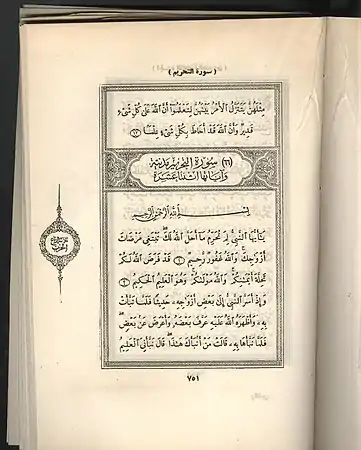 ( سورة التحريم )
مِثْلَهُنَّ يَتَنَزَّلُ ٱلْأَمْرُ بَيْنَهُنَّ لِتَعْلَمُوٓا۟ أَنَّ ٱللَّهَ عَلَىٰ كُلِّ شَىْءٍ
قَدِيرٌ وَأَنَّ ٱللَّهَ قَدْ أَحَاطَ بِكُلِّ شَىْءٍ عِلْمًۢا ١٢
(٦٦) سورة التحريم مدنية
وآياتها اثنتا عشرة
بِسْمِ ٱللَّهِ ٱلرَّحْمَٰنِ ٱلرَّحِيمِ
يَٰٓأَيُّهَا ٱلنَّبِىُّ لِمَ تُحَرِّمُ مَآ أَحَلَّ ٱللَّهُ لَكَ تَبْتَغِى مَرْضَاتَ
أَزْوَٰجِكَ وَٱللَّهُ غَفُورٌ رَّحِيمٌ ١ قَدْ فَرَضَ ٱللَّهُ لَكُمْ
تَحِلَّةَ أَيْمَٰنِكُمْ وَٱللَّهُ مَوْلَىٰكُمْ وَهُوَ ٱلْعَلِيمُ ٱلْحَكِيمُ ٢
وَإِذْ أَسَرَّ ٱلنَّبِىُّ إِلَىٰ بَعْضِ أَزْوَٰجِهِۦ حَدِيثًا فَلَمَّا نَبَّأَتْ
بِهِۦ وَأَظْهَرَهُ ٱللَّهُ عَلَيْهِ عَرَّفَ بَعْضَهُۥ وَأَعْرَضَ عَنۢ بَعْضٍ
فَلَمَّا نَبَّأَهَا بِهِۦ قَالَتْ مَنْ أَنۢبَأَكَ هَٰذَا قَالَ نَبَّأَنِىَ ٱلْعَلِيمُ
٧٥١